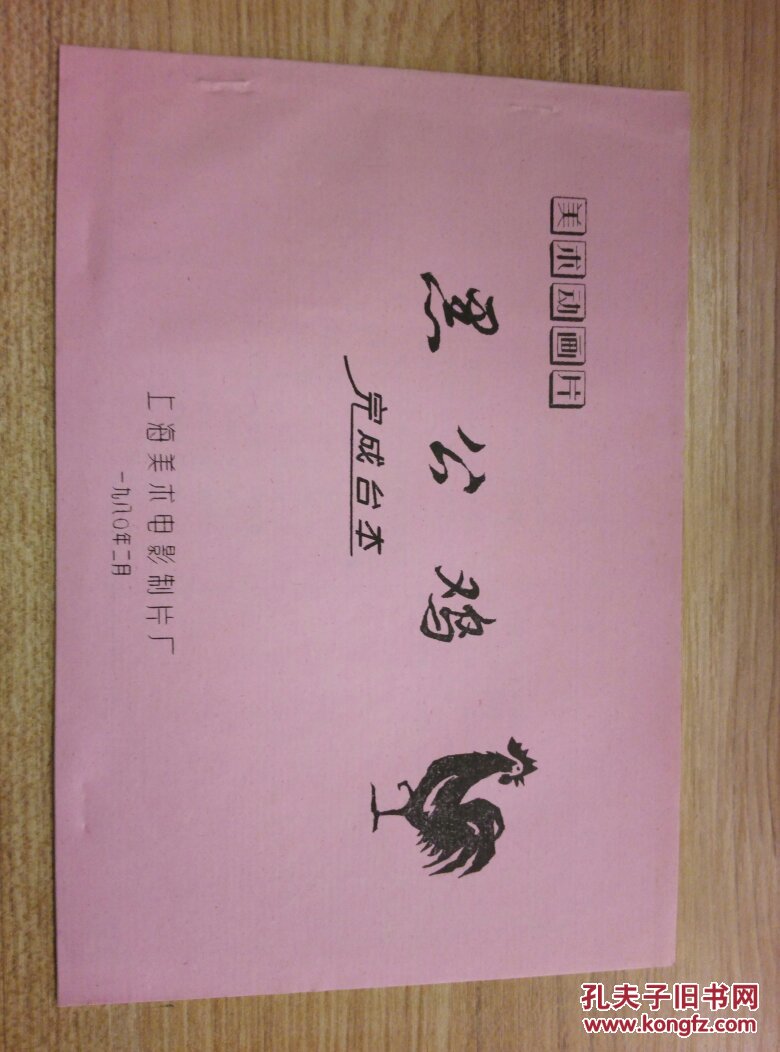 美术动画片
黑公鸡
完成台本
上海美术电影制片厂
一九八〇年二月
孔夫子旧书网
www.kongfz.com